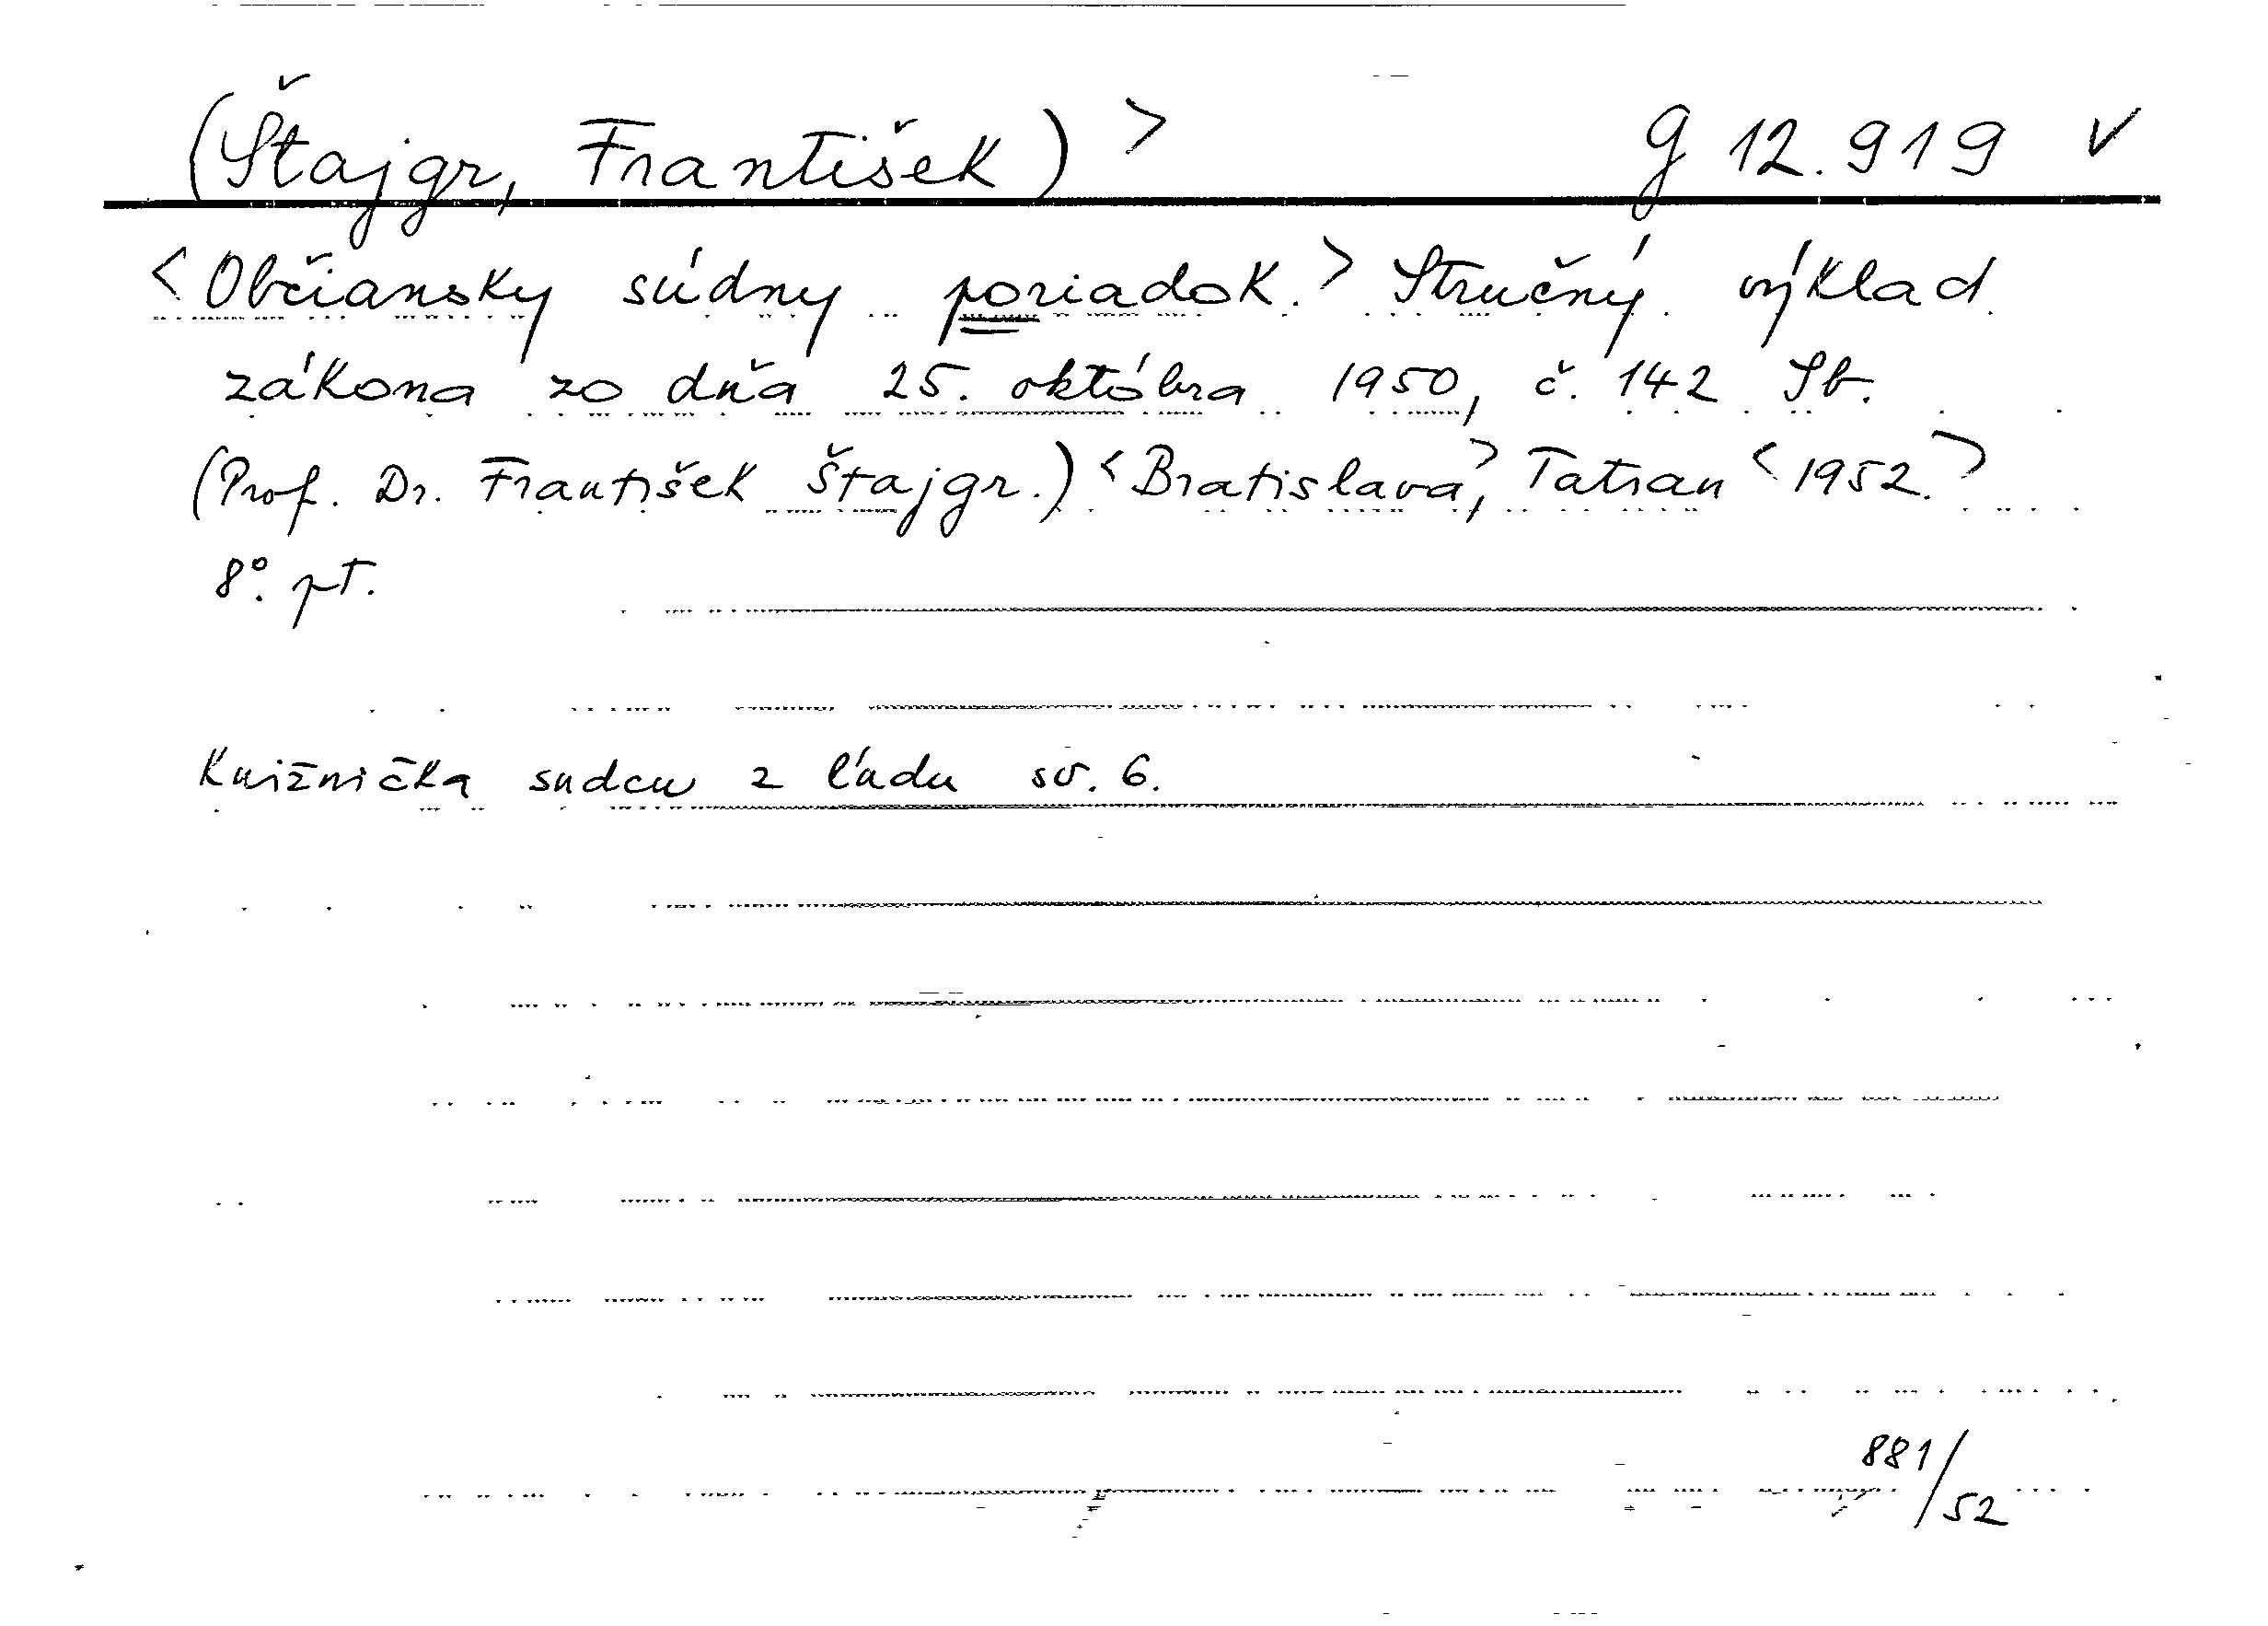 (Štajgr, František) > g 12.919 v
<Občiansky súdny poriadok.> Stručný výklad
zákona zo dňa 25. októbra 1950, č. 142 Sb.
(Prof. Dr. František Štajgr.) <Bratislava>, Tatran <1952.>
8°. pt.
Knižnička sudcu z ľudu sv. 6.
881/52